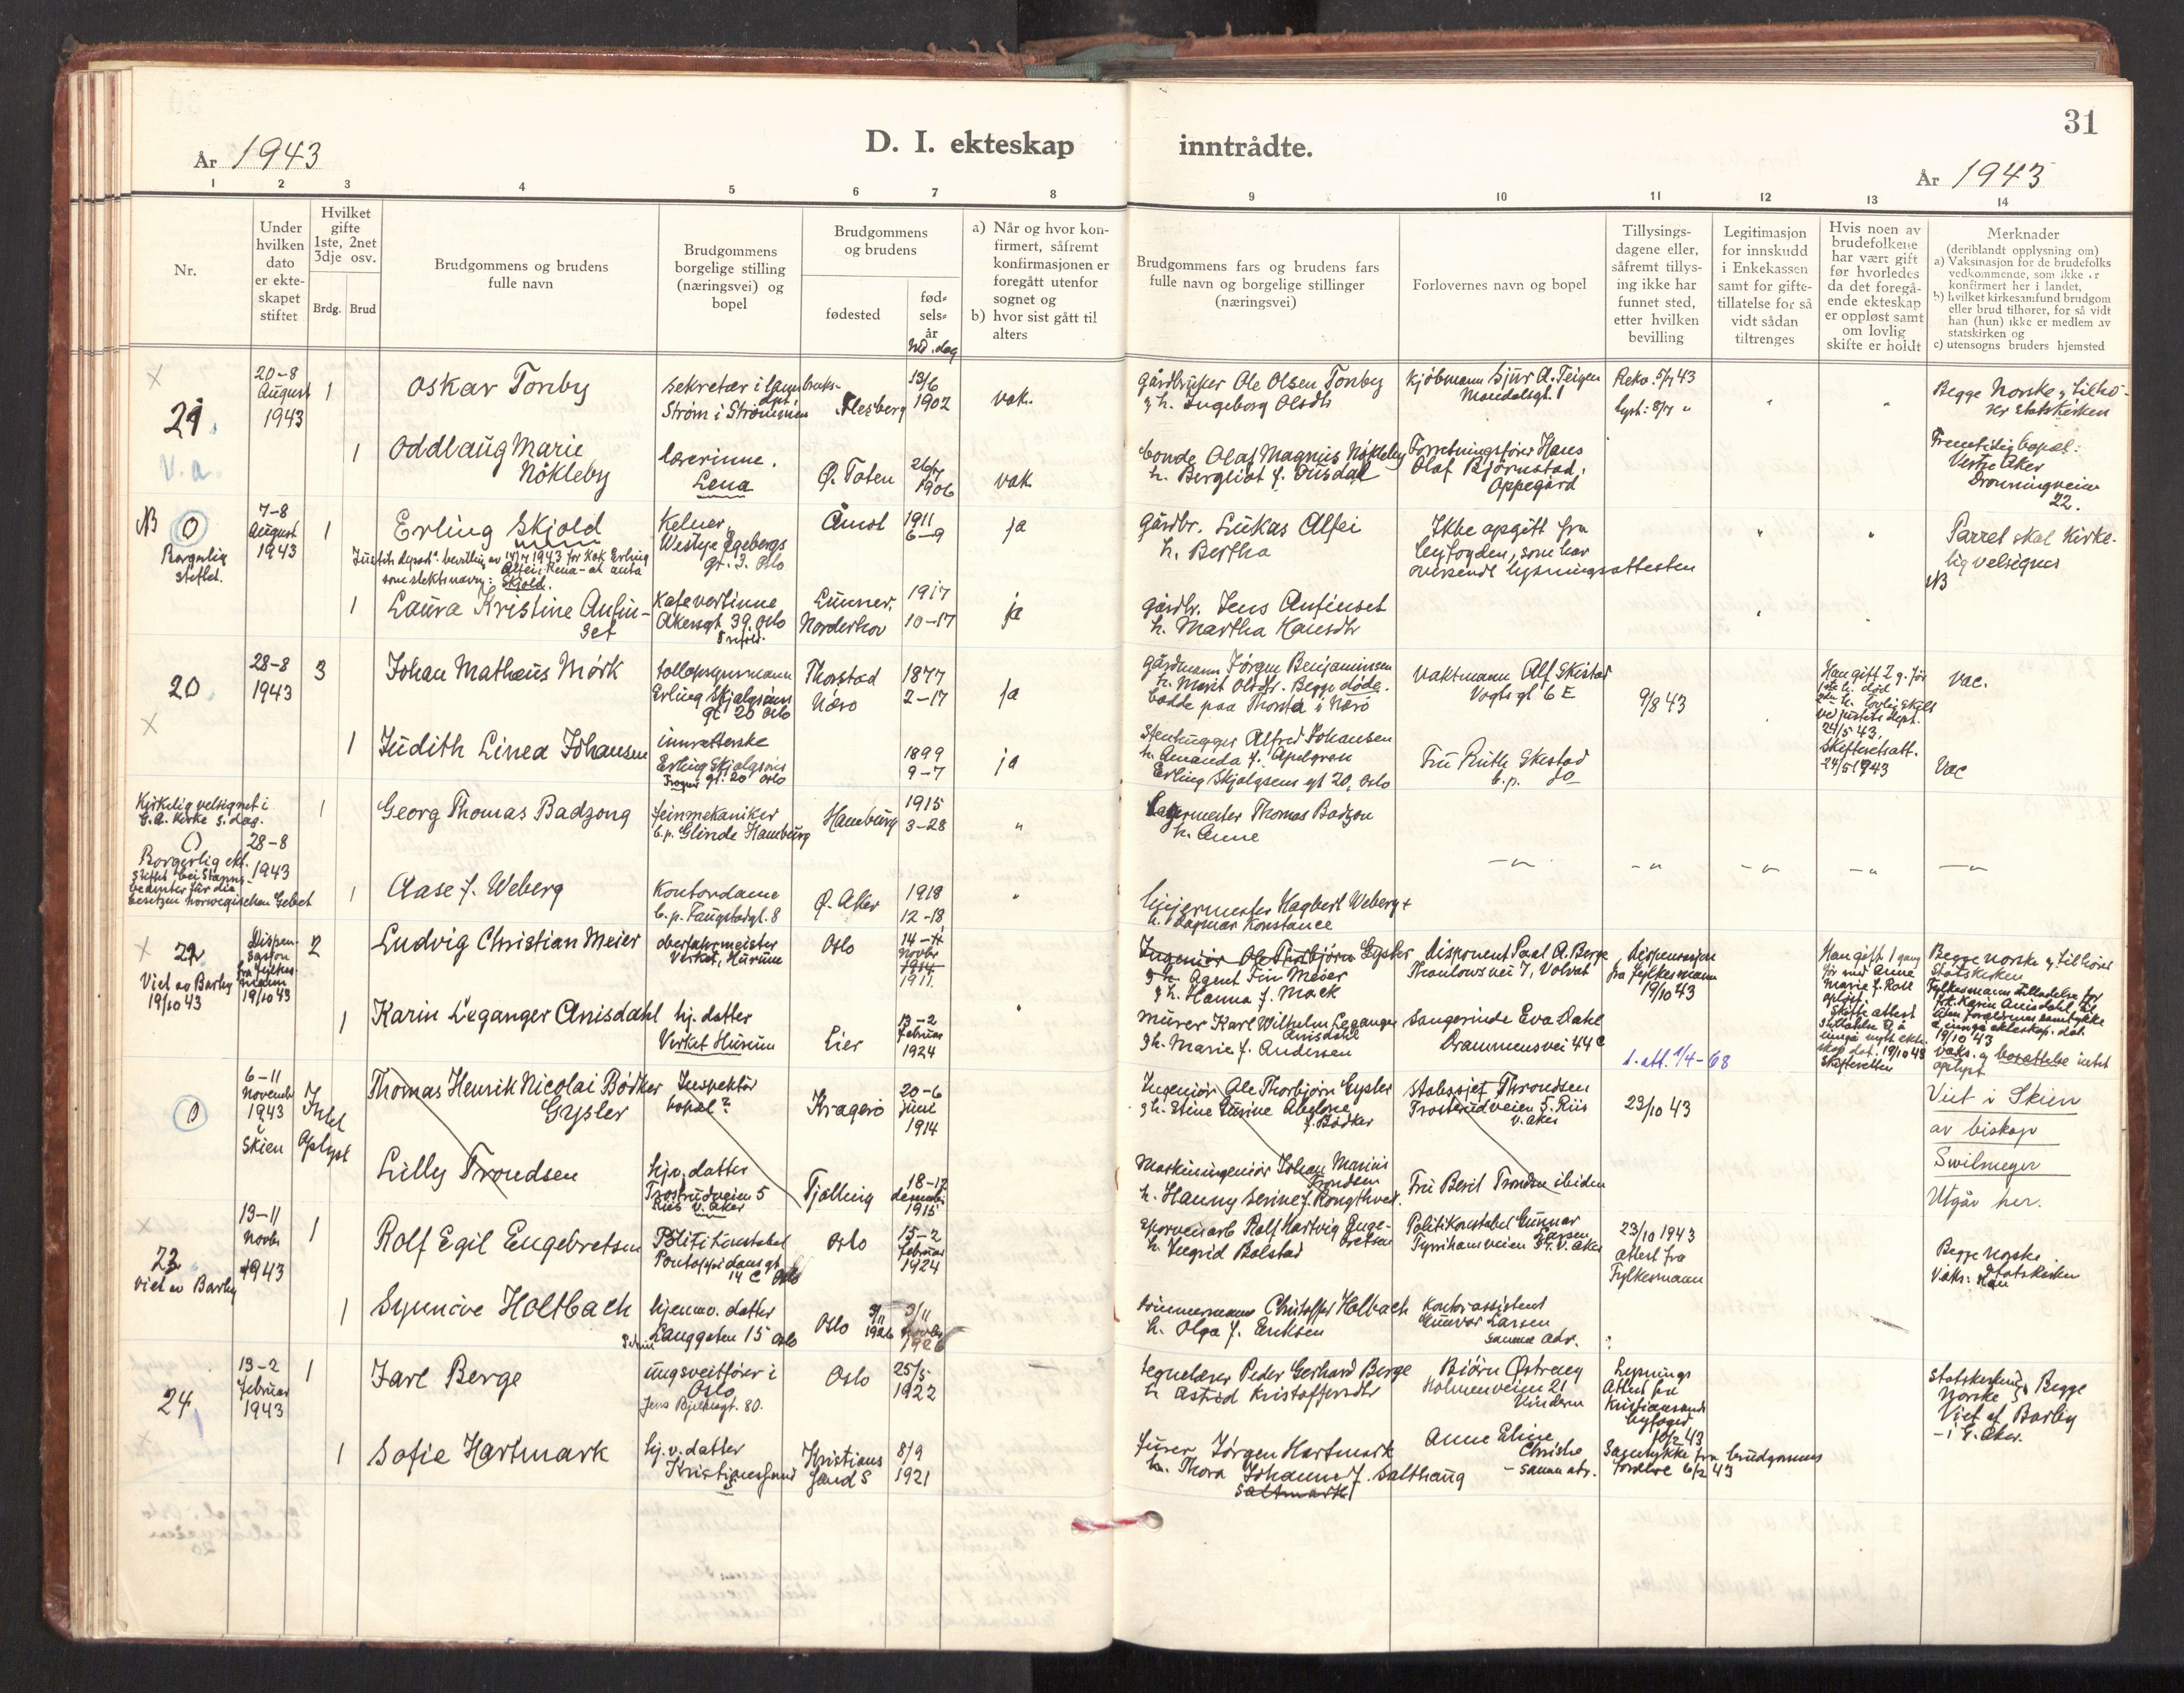 31
År 1943
D. I. ekteskap inntrådte.
År 1943
1 2 3 4 5 6 7 8 9 10 11 12 13 14
Nr.
Under
hvilken
dato
er ekte-
skapet
stiftet
Hvilket
gifte
1ste, 2net
3dje osv.
Brdg. Brud
Brudgommens og brudens
fulle navn
Brudgommens
borgelige stilling
(næringsvei) og
bopel
Brudgommens
og brudens
fødested
fød-
sels-
år
og dag
a) Når og hvor kon-
firmert, såfremt
konfirmasjonen er
foregått utenfor
sognet og
b) hvor sist gått til
alters
Brudgommens fars og brudens fars
fulle navn og borgelige stillinger
(næringsvei)
Forlovernes navn og bopel
Tillysings-
dagene eller,
såfremt tillys-
ing ikke har
funnet sted,
etter hvilken
bevilling
Legitimasjon
for innskudd
i Enkekassen
samt for gifte-
tillatelse for så
vidt sådan
tiltrenges
Hvis noen av
brudefolkene
har vært gift
før hvorledes
da det foregå-
ende ekteskap
er oppløst samt
om lovlig
skifte er holdt
Merknader
(deriblandt opplysning om)
a) Vaksinasjon for de brudefolks
vedkommende, som ikke er
konfirmert her i landet,
b) hvilket kirkesamfund brudgom
eller brud tilhører, for så vidt
han (hun) ikke er medlem av
statskirken og
c) utensogns bruders hjemsted
21.
V. a.
20-8
August
1943
1
Oskar Tonby
sekretær i landbruks-
dpt.
Strøm i Strømmen
Flesberg
13/6
1902
vak.
Gårdbruker Ole Olsen Tonby
g h. Ingeborg Olsdtr
Kjøbmann Sjur A. Teigen
Mandalsgt. 1
Rekv. 5/7 43
lyst: 8/7 "
Begge Norske, tilhø-
rer statskirken
1
Oddlaug Marie
Nökleby
lærerinne.
Lena
Ø. Toten
26/7
1906
vak.
bonde Olaf Magnus Nökleby
h. Bergliot f. Dusdal
Forretningsfører Hans
Olaf Bjørnstad,
Oppegård
Fremtidig bopel:
Vestre Aker
Dronningveien
22.
NB O
Borgerlig
stiftet.
7-8
August
1943
1
Erling Skjold
Justits depart. bevilling av 17/7 1943 for Kok Erling
Alfei, Rena - at anta
som slektsnavn: Skjold.
Kelner,
Westye Egebergs
gt. 3. Oslo
Åmot
1911
6-9
ja
Gårdbr. Lukas Alfei
h. Bertha
Ikke opgitt fra
byfogden, som har
oversendt lysningsattesten
Parret skal kirke-
lig velsignes
NB
1
Laura Kristine Anfin-
set
Kafevertinne
Akersgt 39, Oslo
Lunner,
Norderhov
1917
10-17
ja
gårdbr. Jens Anfinset
h. Martha Hansdtr
20.
28-8
1943
3
Johan Mathæus Mörk
tollopsynsmann
Erling Skjalgsøns
gt 20 Oslo
Thorstad
Nærø
1877
2-17
ja
Gårdmann Jörgen Benjaminsen
h. Marit Olsdtr. Begge døde.
bodde paa Thorstad i Nærö
Vaktmann Alf Skistad
Vogts gt 6 E
9/8 43
Han gift 2 g. før
1ste h. død
2den h. lovlig skilt
ved justits dept.
24/5 43,
Skifteretsatt.
24/5 1943
vac.
1
Judith Linea Johansen
innsetterske
Erling Skjalgsøns
Frogner gt. 20 Oslo
1899
9-7
ja
Stenhugger Alfred Johansen
h. Amanda f. Apelgren
Erling Skjalgsøns gt 20, Oslo
Fru Ruth Skistad
b.p. do
Vac
Kirkelig velsignet i
G. A. Kirke s. dag.
O
28-8
1943
Borgerlig ekt.
stiftet bei Stands-
beamter für die
besetzen norwegischen Gebiet
1
Georg Thomas Badzong
feinmekaniker
b.p. Glinde Hamburg
Hamburg
1915
3-28
"
Lagermester Thomas Badzon
h. Anne
1
Aase f. Weberg
Kontordame
b.p. Faugstadgt. 8
Ø. Aker
1918
12-18
"
Linjermester Hagbert Weberg +
h. Dagmar Konstance
22
Viet av Barby
19/10 43
Dispen-
sasjon
fra fylkes-
mann
19/10 43
2
Ludvig Christian Meier
oberfahrmeister
Verket, Hurum
Oslo
14-11
Novbr
1914
1911
Ingeniør Ole Thorbjørn Gysler
g h. Agent Finn Meier
g h. Hanna f. Mack
Disponent Paul A. Berge
Thaulows vei 7, Volvat
Dispensasjon
fra fylkesmann
19/10 43
Han gift 1 gang
før med Anne
Marie f. Roll
opløst.
skifte attest
tillatelse til å
inngå nytt ekte-
skap dat. 19/10 43
skifteretten
Begge norske g tilhører
Statskirken
Fylkesmanns tilladelse for
frk. Karin Amisdahl til
uten foreldrenes samtykke
å inngå ekteskap. dat.
19/10 43
vaks. g bosettelse intet
oplyst
1
Karin Leganger Amisdahl
hj. datter
Verket Hurum
Lier
13-2
Februar
1924
murer Karl Wilhelm Leganger
Amisdahl
g h. Marie f. Andersen
Sangerinde Eva Dahl
Drammensvei 44 c
d. att. 1/4-68
O
6-11
Novembr
1943
i
Skien
Intet
oplyst
Thomas Henrik Nicolai Bødker
Gysler
Inspektør
bopæl?
Kragerö
20-6
juni
1914
Ingeniør Ole Thorbjørn Gysler
g h. Stine Lusine Abelone
f. Bødker
Statssjef Throndsen
Trosterudveien 5. Riis
V. Aker
23/10 43
Viet i Skien
av biskop
Swilmeyer
Utgår her.
Lilly Trondsen
hjv. datter
Trosterudveien 5
Riis V. Aker
Tjølling
18-12
desemb.
1915
Maskiningeniør Johan Marius
Trondsen
h. Hanny Serine f. Rongtved.
Fru Berit Trondsen ibiden
23.
viet av Barby
13-11
Novbr
1943
1
Rolf Egil Engebretsen
Politikonstabel
Pontoppidans gt
14 C Oslo
Oslo
15-2
februar
1924
sporveisarb Ralf Hartvig Enge-
bretsen
h. Ingrid Bolstad
Politikonstabel Gunnar
Larsen
Tyrihansveien 34. V. Aker
23/10 1943
attest fra
Fylkesmann
Begge norske.
Statskirken
Vaks: Han
1
Synnöve Holtbach
hjemmv. datter
Langgaten 15 Oslo
Oslo
3/11
1926
3/11
Novbr
1926
tömmermann Christoffer Holbach
h. Olga f. Eriksen
Kontorassistent
Gunvor Larsen
samme adr.
24.
13-2
februar
1943
1
Jarl Berge
ungsveitfører i
Oslo,
Jens Bjelkesgt. 80.
Oslo
25/5
1922
tegnelærer Peder Gerhard Berge
h Astrid Kristoffersdtr
Biörn Östraay
Holmenveien 21
Vinderen
Lysnings
Attest fra
Kristiansands
byfoged
10/2 43
Statskirken, Begge
Norske
Viet af Barby
- i V. Aker.
1
Sofie Hartmark
hj. v. datter
Kristiansand
S
Kristians
sand S
8/9
1921
furer Jörgen Hartmark
h. Thora Johanne f. Salthaug
Saltmark
Anne Eline
Christie
- samme adr.
Samtykke fra brudgommens
foreldre 6/2 43